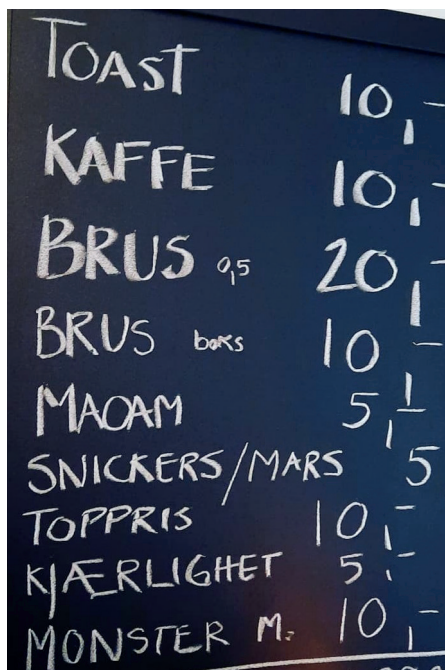 TOAST 10,-
KAFFE 10,-
BRUS 0,5 20,-
BRUS boks 10 -
MAOAM 5,-
SNICKERS/MARS 5
TOPPRIS 10,-
KJÆRLIGHET 5,-
MONSTER M. 10,-